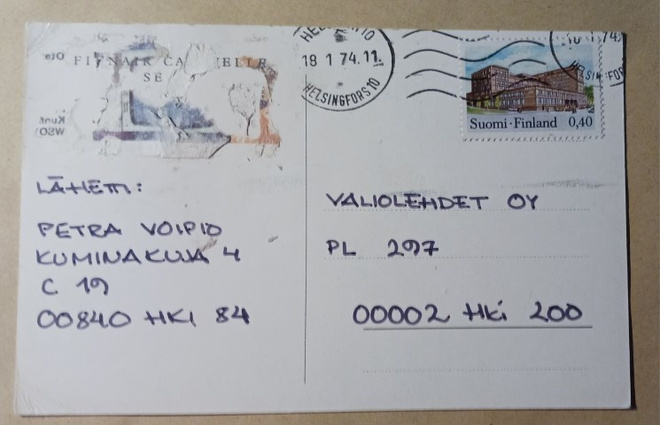 FINNAIR
SE
HELSINKI 10
18 1 74.11.
HELSINGFORS 10
1 74.
Suomi · Finland 0,40
LÄHETTI:
PETRA VOIPIO
KUMINAKUJA 4
C 19
00840 HKI 84
VALIOLEHDET OY
PL 297
00002 HKi 200